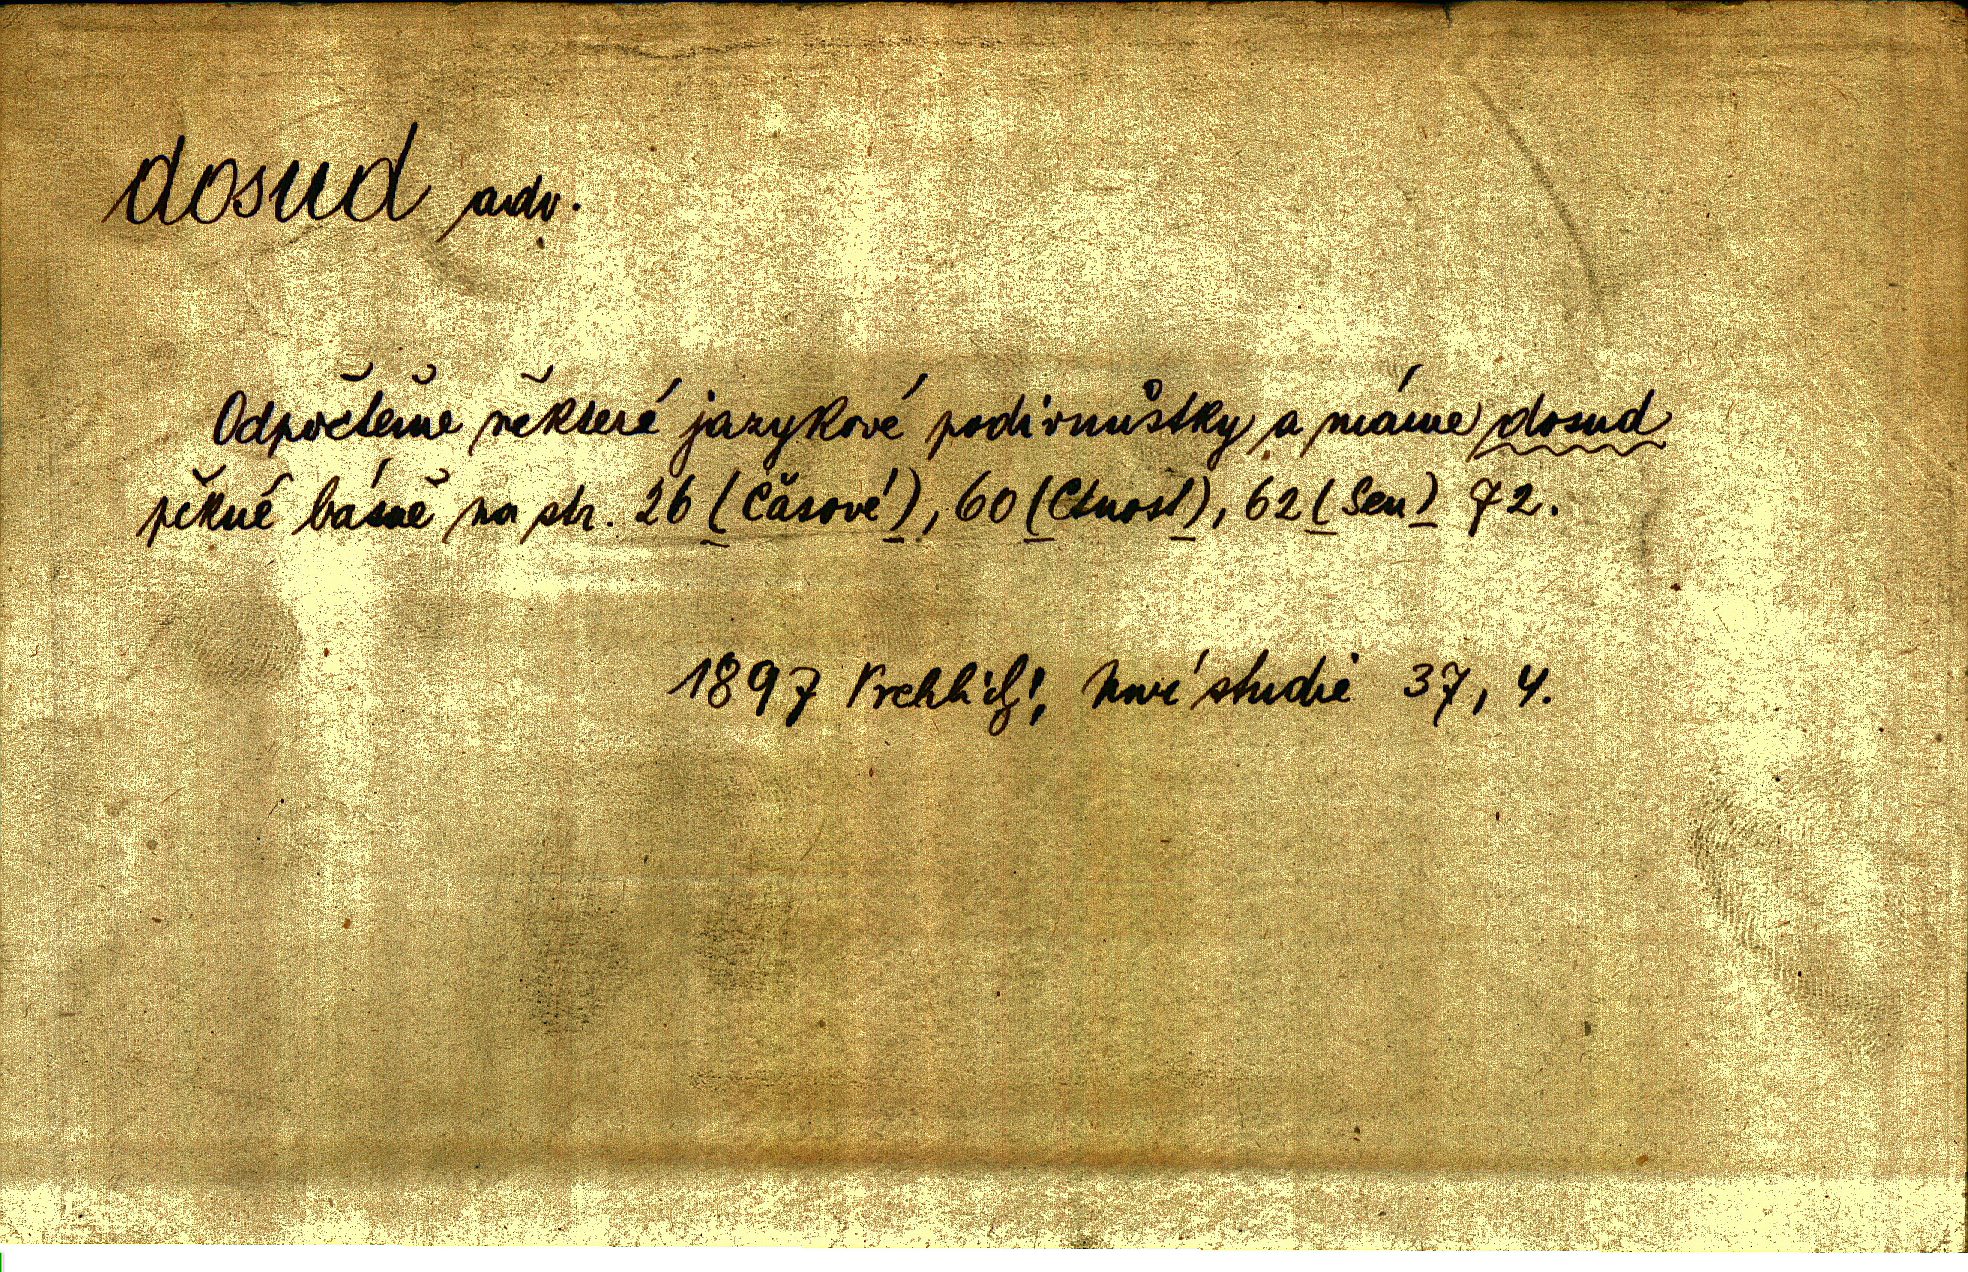 dosud adv.
Odpočtěme některé jazykové podivnůstky a máme dosud
pěkné básně na str. 26 (Časové), 60 (Ctnost), 62 (Sen) 72.
1897 Vrchlický, Nové studie 37, 4.